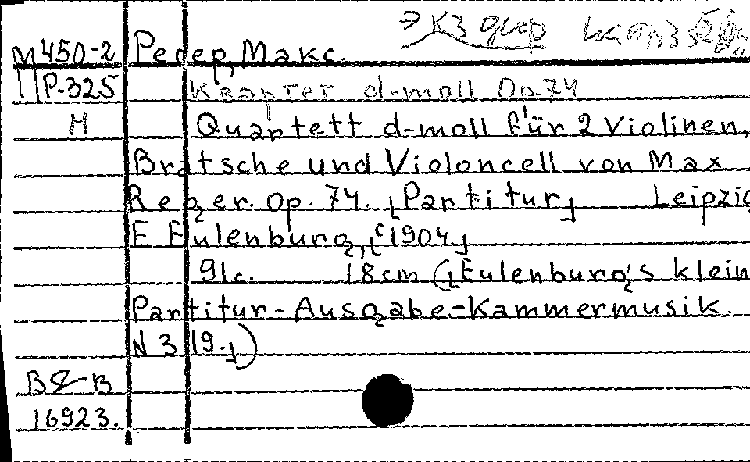 М450-2 Регер, Макс.
П Р-325 Квартет d-moll Op. 74
Н Quartett d-moll für 2 Violinen,
Bratsche und Violoncell von Max
Reger. Op. 74. [Partitur] Leipzig
E Eulenburg, [c 1904]
91c. 18cm ([Eulenburg's klein
Partitur-Ausgabe-Kammermusik
N 319.])
B&B
16923.